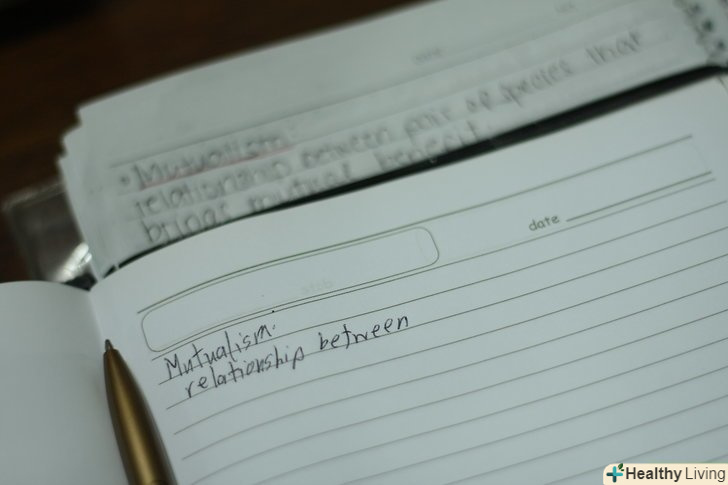 • Mutualism:
relationship between pair of species that
brings mutual benefit
date
Mutualism:
relationship between
Healthy Living